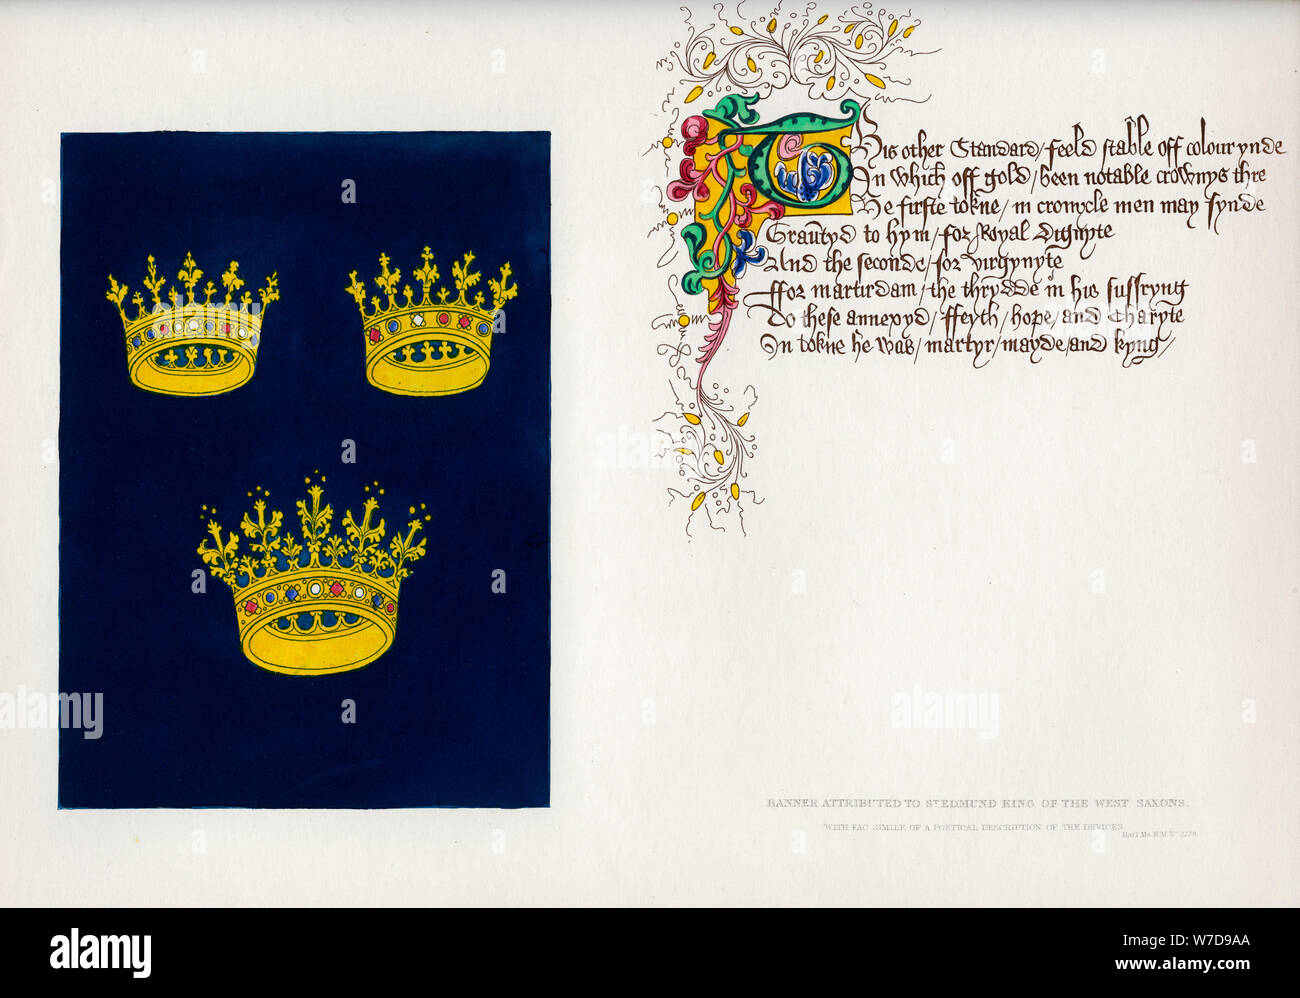 This other Standard / feeld stable off colour ynde
In which off gold / been notable crownys thre
The firste tokne / in cronycle men may fynde
Grauntyd to hym / for Royal Dignyte
And the seconde / for virgynyte
ffor martirdam / the thrydde in his suffryng
To these annexyd / ffeyth / hope / and Charyte
In tokne he was / martyr / mayde / and kyng /
BANNER ATTRIBUTED TO ST EDMUND KING OF THE WEST SAXONS.
WITH FAC SIMILE OF A POETICAL DESCRIPTION OF THE DEVICES.
Harl. Ms. B.M. No 2278
alamy
Image ID: W7D9AA
www.alamy.com